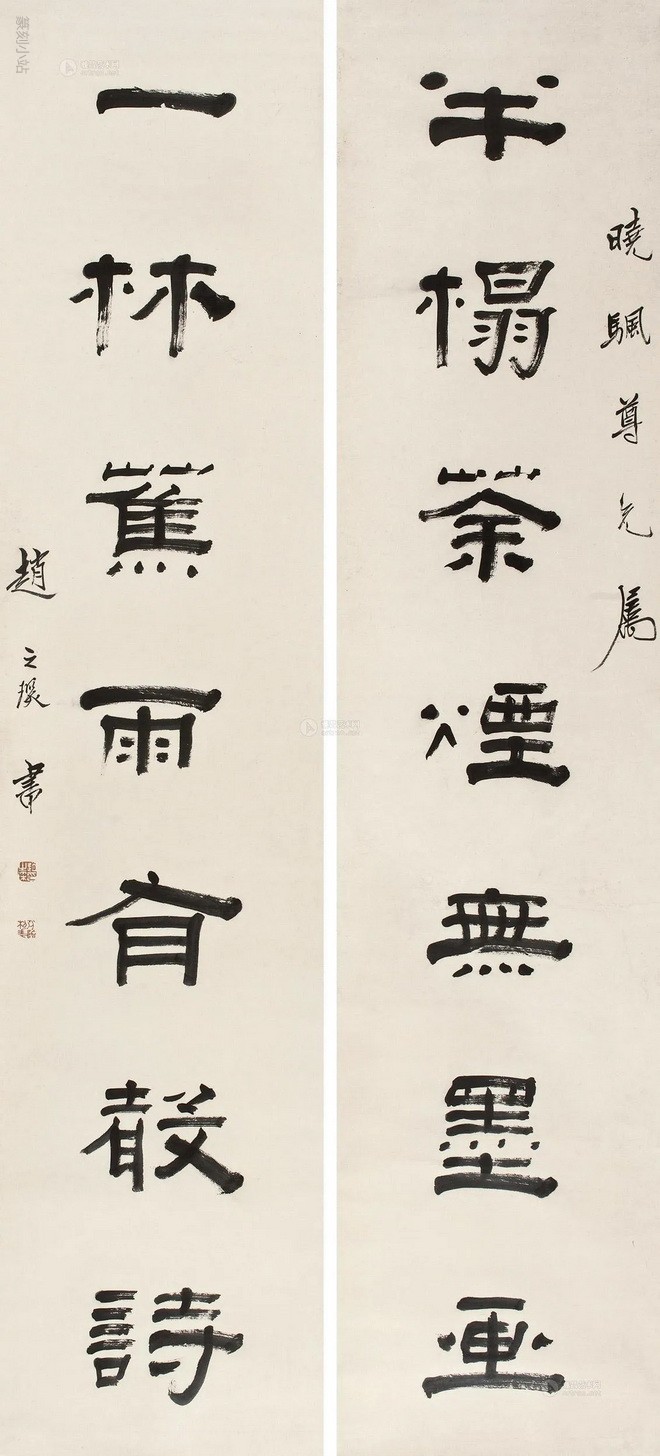 曉颿尊兄屬
半榻茶煙無墨畫
一林蕉雨有聲詩
趙之琛書
篆刻小站